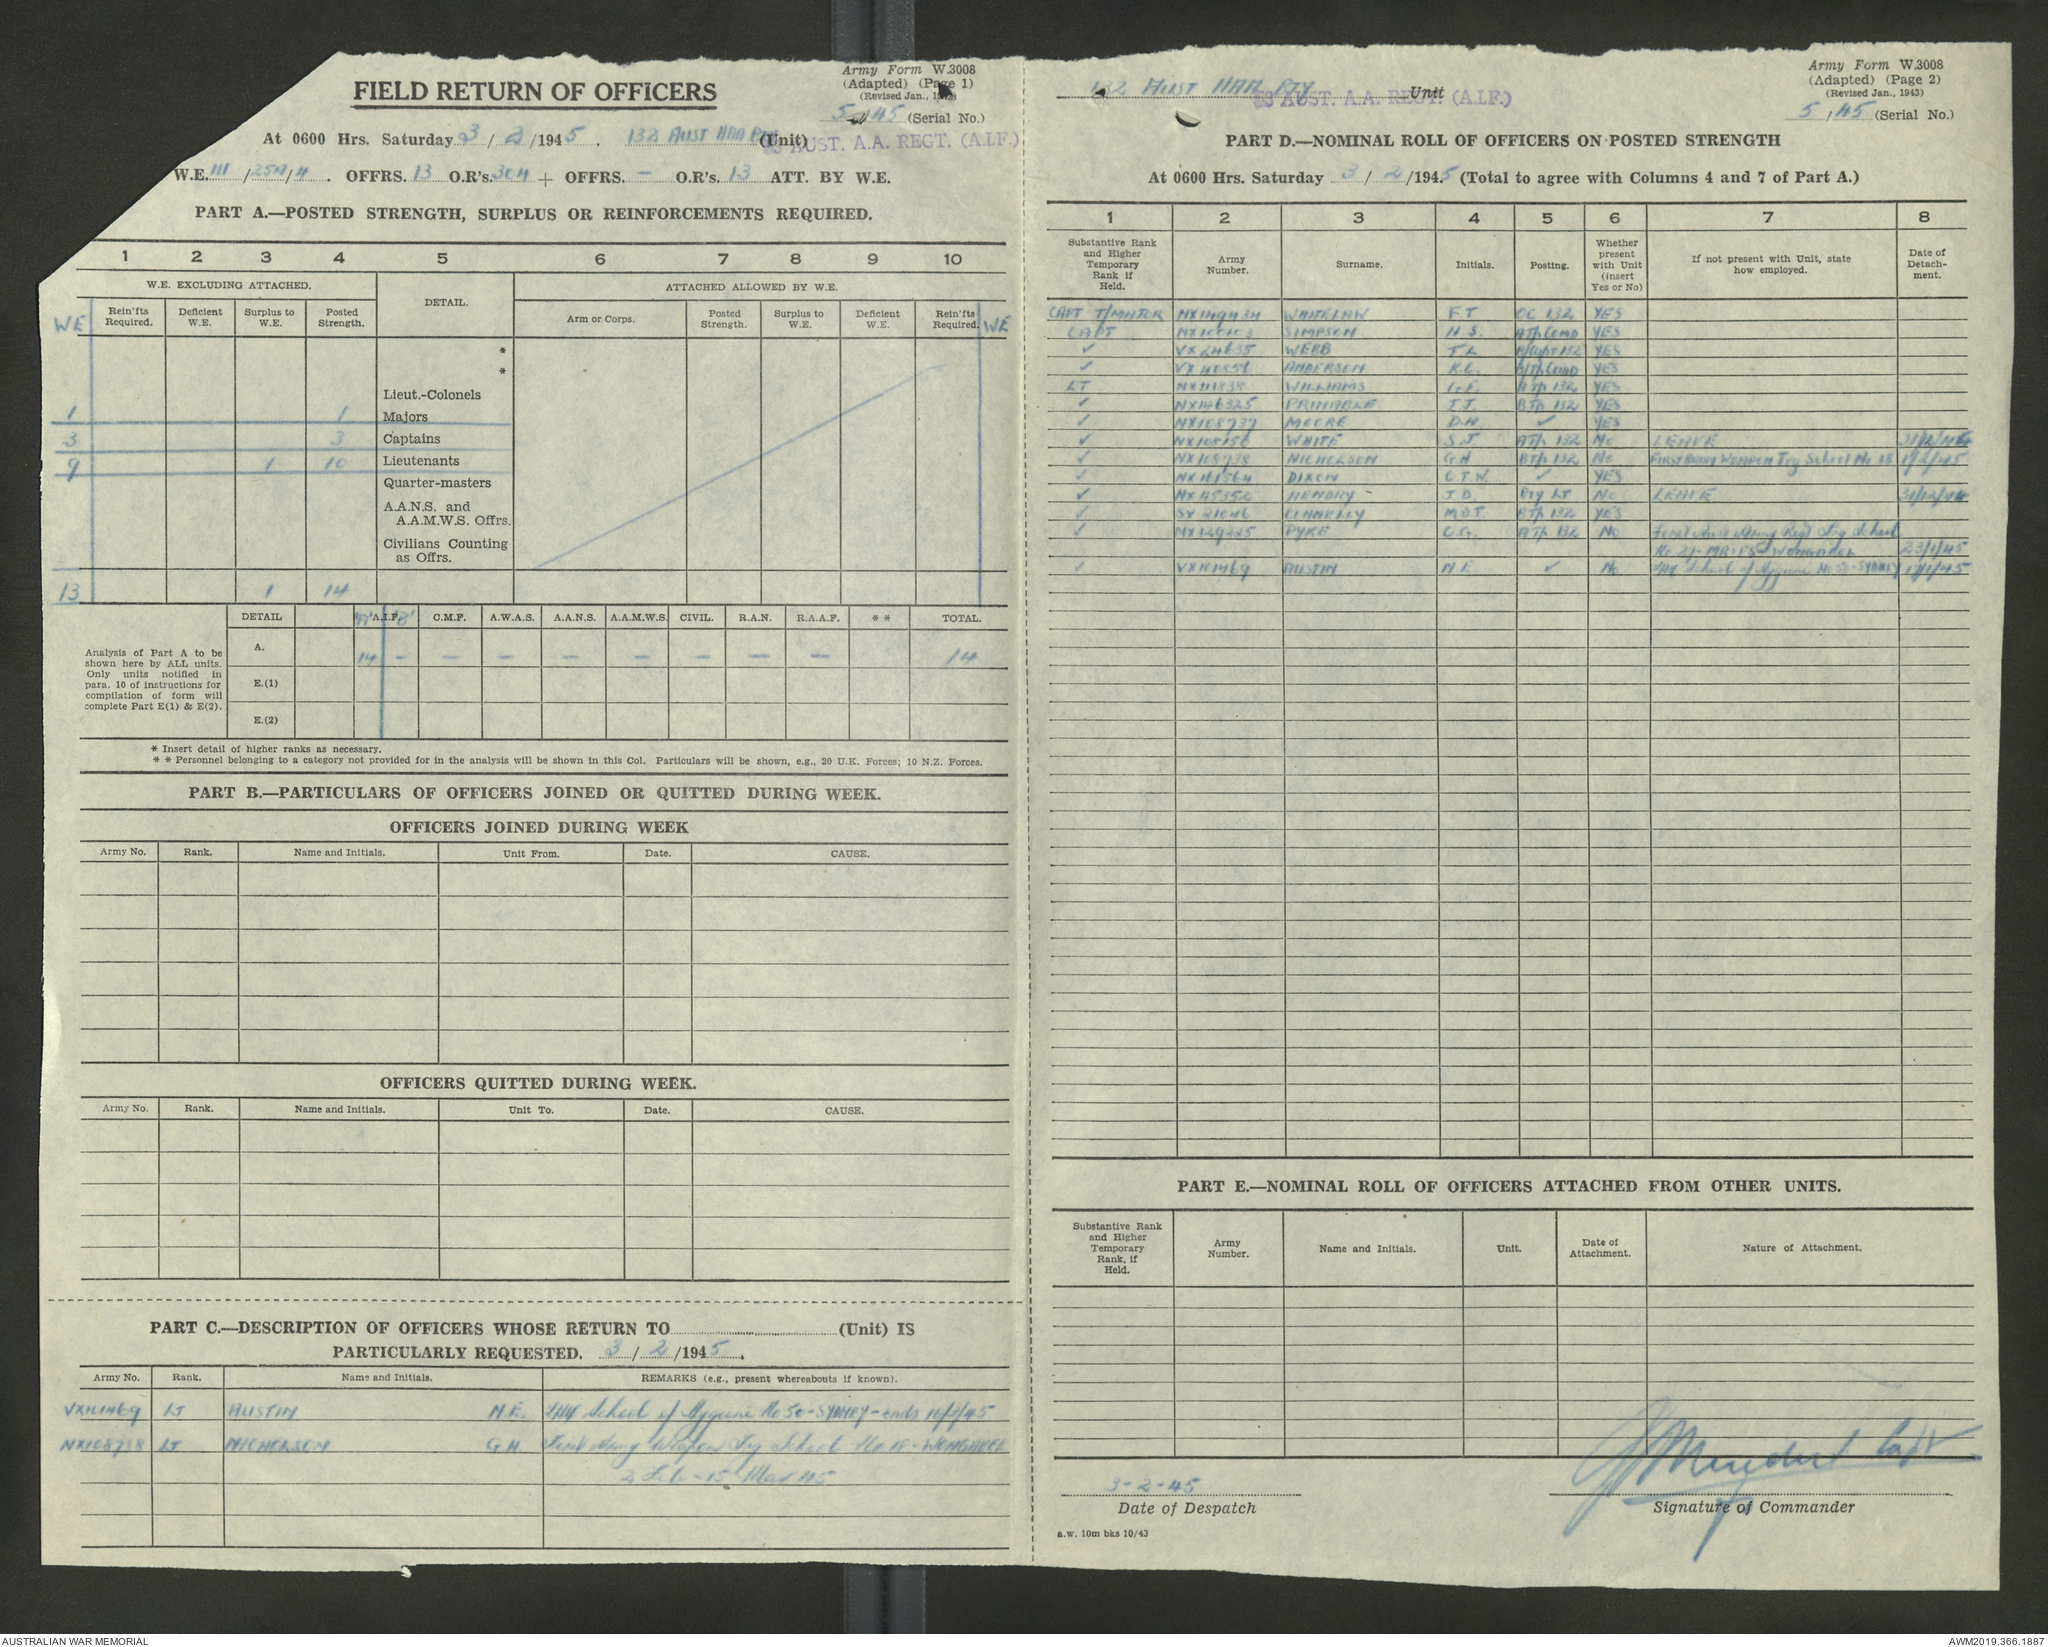 FIELD RETURN OF OFFICERS
Army Form W.3008
(Adapted) (Page 1)
(Revised Jan., 1943)
5/45 (Serial No.)
At 0600 Hrs. Saturday 3/2/1945. 132 AUST HAA BTY (Unit)
AUST. A.A. REGT. (A.I.F.)
W.E. III/25/4. OFFRS. 13 O.R's. 304 + OFFRS. - O.R's. 13 ATT. BY W.E.
PART A.—POSTED STRENGTH, SURPLUS OR REINFORCEMENTS REQUIRED.
1 2 3 4 5 6 7 8 9 10
W.E. EXCLUDING ATTACHED. DETAIL. ATTACHED ALLOWED BY W.E.
WE Rein'fts Required. Deficient W.E. Surplus to W.E. Posted Strength. Arm or Corps. Posted Strength. Surplus to W.E. Deficient W.E. Rein'fts Required. WE
*
*
Lieut.-Colonels
1 1 Majors
3 3 Captains
9 1 10 Lieutenants
Quarter-masters
A.A.N.S. and A.A.M.W.S. Offrs.
Civilians Counting as Offrs.
13 1 14
DETAIL "A" A.I.F. "B" C.M.F. A.W.A.S. A.A.N.S. A.A.M.W.S. CIVIL. R.A.N. R.A.A.F. * * TOTAL.
Analysis of Part A to be
shown here by ALL units.
Only units notified in
para. 10 of instructions for
compilation of form will
complete Part E(1) & E(2).
A. 14 – – – – – – – – 14
E.(1)
E.(2)
* Insert detail of higher ranks as necessary.
* * Personnel belonging to a category not provided for in the analysis will be shown in this Col. Particulars will be shown, e.g., 20 U.K. Forces; 10 N.Z. Forces.
PART B.—PARTICULARS OF OFFICERS JOINED OR QUITTED DURING WEEK.
OFFICERS JOINED DURING WEEK
Army No. Rank. Name and Initials. Unit From. Date. CAUSE.
OFFICERS QUITTED DURING WEEK.
Army No. Rank. Name and Initials. Unit To. Date. CAUSE.
PART C.—DESCRIPTION OF OFFICERS WHOSE RETURN TO (Unit) IS
PARTICULARLY REQUESTED. 3/2/1945.
Army No. Rank. Name and Initials. REMARKS (e.g., present whereabouts if known).
VX101469 LT AUSTIN N.E. LHQ School of Hygiene No 50-SYDNEY-ends 10/3/45
NX108738 LT NICHOLSON G.H. First Army Weapon Trg School No 18-WONGABEL
2 Feb-15 Mar 45
132 AUST HAA BTY Unit
AUST. A.A. REGT. (A.I.F.)
Army Form W.3008
(Adapted) (Page 2)
(Revised Jan., 1943)
5/45 (Serial No.)
PART D.—NOMINAL ROLL OF OFFICERS ON POSTED STRENGTH
At 0600 Hrs. Saturday 3/2/1945 (Total to agree with Columns 4 and 7 of Part A.)
1 2 3 4 5 6 7 8
Substantive Rank and Higher Temporary Rank if Held. Army Number. Surname. Initials. Posting. Whether present with Unit (insert Yes or No) If not present with Unit, state how employed. Date of Detachment.
CAPT T/MAJOR NX149434 WHITELAW F.T. OC 132 YES
CAPT SIMPSON H.S. A/Tp Comd YES
✓ VX24635 WEBB T.L. 132 YES
✓ VX40856 ANDERSON R.C. B/Tp Comd YES
LT NX111838 WILLIAMS G.F. ATp 132 YES
✓ NX146325 PRIMABLE T.J. BTp 132 YES
✓ NX108737 MOORE D.N. ✓ YES
✓ NX108156 WHITE S.J. ATp 132 No LEAVE
✓ NX108738 NICHOLSON G.H. BTp 132 No FIRST ARMY WEAPON Trg School No 18 1/2/45
✓ NX161564 DIXON C.T.W. ✓ YES
✓ NX115352 HENDRY J.D. Bty LT No LEAVE 31/12/44
✓ SX21046 CONNELLY M.D.T. BTp 132 YES
✓ NX129225 PYKE C.G. ATp 132 No First Aust Army Regt Trg School
No 27-MR ES-WONGABEL 23/1/45
✓ VX101469 AUSTIN N.E. ✓ No LHQ School of Hygiene No 50-SYDNEY
PART E.—NOMINAL ROLL OF OFFICERS ATTACHED FROM OTHER UNITS.
Substantive Rank and Higher Temporary Rank, if Held. Army Number. Name and Initials. Unit. Date of Attachment. Nature of Attachment.
Capt
3-2-45
Date of Despatch
Signature of Commander
a.w. 10m bks 10/43
AUSTRALIAN WAR MEMORIAL
AWM2019.366.1887